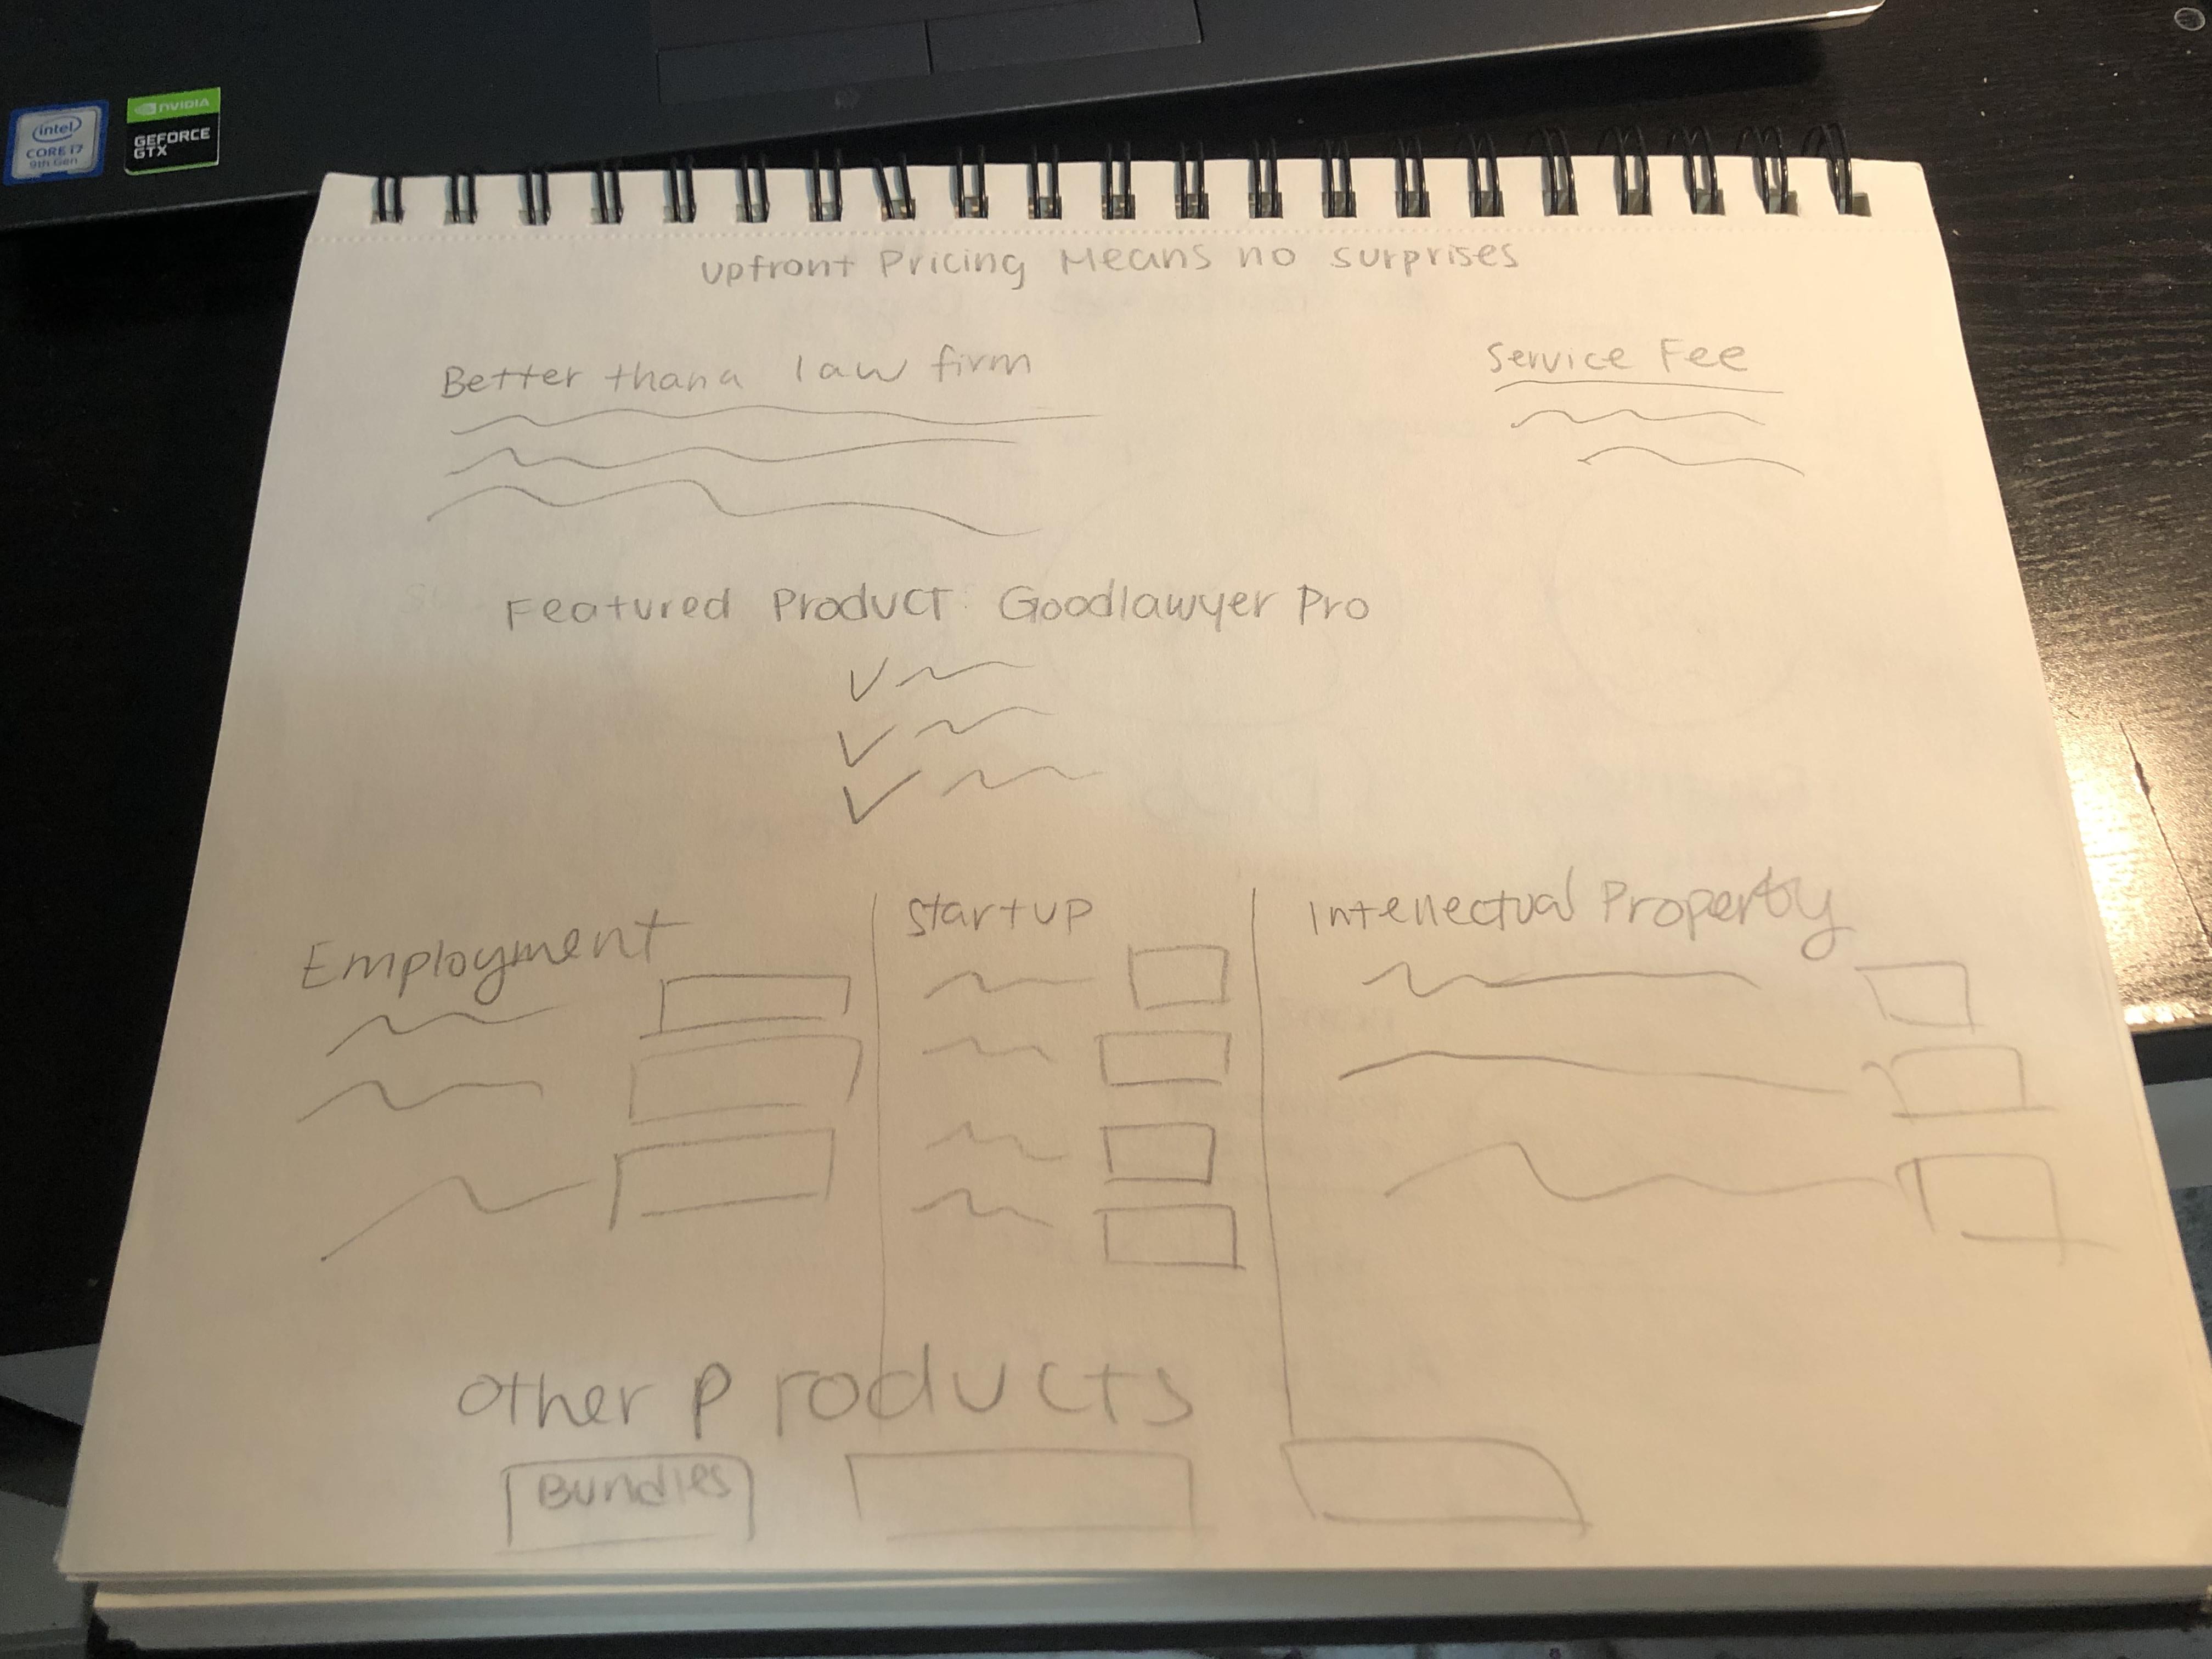 intel
CORE i7
9th Gen
NVIDIA
GEFORCE
GTX
upfront Pricing Means no surprises
Better than a law firm
Service Fee
Featured Product Goodlawyer Pro
Employment
Startup
Intellectual Property
Other products
Bundles